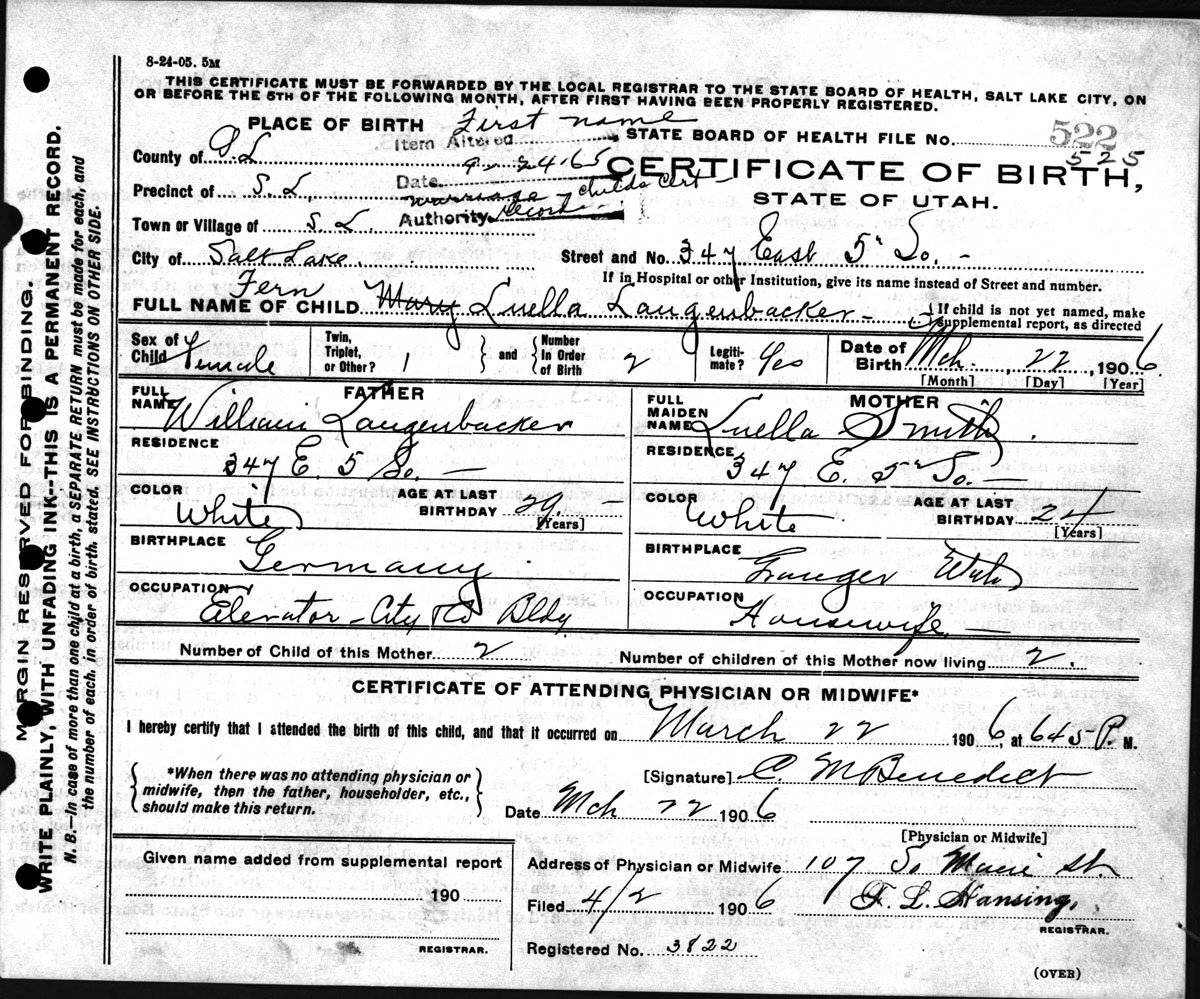 8-24-05. 5M
THIS CERTIFICATE MUST BE FORWARDED BY THE LOCAL REGISTRAR TO THE STATE BOARD OF HEALTH, SALT LAKE CITY, ON
OR BEFORE THE 5TH OF THE FOLLOWING MONTH, AFTER FIRST HAVING BEEN PROPERLY REGISTERED.
PLACE OF BIRTH First name
Item Altered
STATE BOARD OF HEALTH FILE No. 522
525
County of S L
Date 9-24-65
CERTIFICATE OF BIRTH,
Precinct of S. L.
marriage & childs cert
STATE OF UTAH.
Authority Record
Town or Village of S L.
City of Salt Lake Street and No. 347 East 5" So.
If in Hospital or other Institution, give its name instead of Street and number.
Fern
FULL NAME OF CHILD Mary Luella Langenbacker
If child is not yet named, make
supplemental report, as directed
Sex of Child Female Twin, Triplet, or Other? 1 and Number In Order of Birth 2 Legiti-mate? Yes Date of Birth Mch. 22, 1906
[Month] [Day] [Year]
FATHER
FULL NAME William Langenbacker
RESIDENCE
347 E. 5 So.
COLOR White AGE AT LAST BIRTHDAY 29
[Years]
BIRTHPLACE
Germany
OCCUPATION
Elevator - City & Co Bldg
MOTHER
FULL MAIDEN NAME Luella Smith
RESIDENCE
347 E. 5" So.
COLOR White AGE AT LAST BIRTHDAY 24
[Years]
BIRTHPLACE
Granger Utah
OCCUPATION
Housewife
Number of Child of this Mother 2 Number of children of this Mother now living 2.
CERTIFICATE OF ATTENDING PHYSICIAN OR MIDWIFE*
I hereby certify that I attended the birth of this child, and that it occurred on March 22 1906, at 645 P. M.
*When there was no attending physician or
midwife, then the father, householder, etc.,
should make this return.
[Signature] C. M Benedict
Date Mch 22 1906
[Physician or Midwife]
Given name added from supplemental report
190
REGISTRAR.
Address of Physician or Midwife 107 So Main St.
Filed 4/2 1906 F. L. Hansing,
REGISTRAR.
Registered No. 3822
(OVER)
MARGIN RESERVED FOR BINDING.
WRITE PLAINLY, WITH UNFADING INK--THIS IS A PERMANENT RECORD.
N.B.--In case of more than one child at a birth, a SEPARATE RETURN must be made for each, and
the number of each, in order of birth, stated. SEE INSTRUCTIONS ON OTHER SIDE.